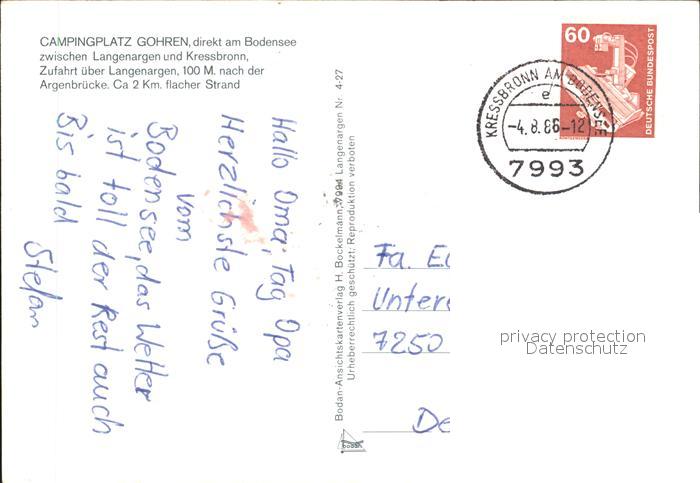 CAMPINGPLATZ GOHREN, direkt am Bodensee
zwischen Langenargen und Kressbronn,
Zufahrt über Langenargen, 100 M. nach der
Argenbrücke. Ca 2 Km. flacher Strand
Hallo Oma, Tag Opa
Herzlichste Grüße
vom
Bodensee, das Wetter
ist toll der Rest auch
Bis bald
Stefan
Bodan-Ansichtskartenverlag H. Bockelmann, 7994 Langenargen Nr. 4-27
Urheberrechtlich geschützt; Reproduktion verboten
60
DEUTSCHE BUNDESPOST
KRESSBRONN AM BODENSEE
e
-4.8.86-12
7993
Fa. E
Unter
7250
De
privacy protection
Datenschutz